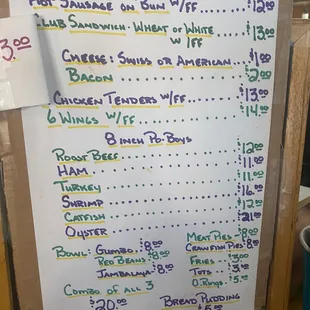 Hot Sausage on Bun w/FF ..... $12.00
Club Sandwich - Wheat or White
w/FF ..... $13.00
3.00
Cheese: Swiss or American ... $1.00
Bacon ..... $2.00
Chicken Tenders w/FF ..... $13.00
6 Wings w/FF ..... $14.00
8 inch Po-Boys
Roast Beef ..... $12.00
Ham ..... $11.00
Turkey ..... $11.00
Shrimp ..... $16.00
Catfish ..... $12.00
Oyster ..... $21.00
Bowl: Gumbo $8.00
Red Beans $8.00
Jambalaya $8.00
Combo of all 3
$20.00
Meat Pies $8.00
Crawfish Pies $8.00
Fries $3.00
Tots $3.00
O.Rings $5.00
Bread Pudding
$5.00